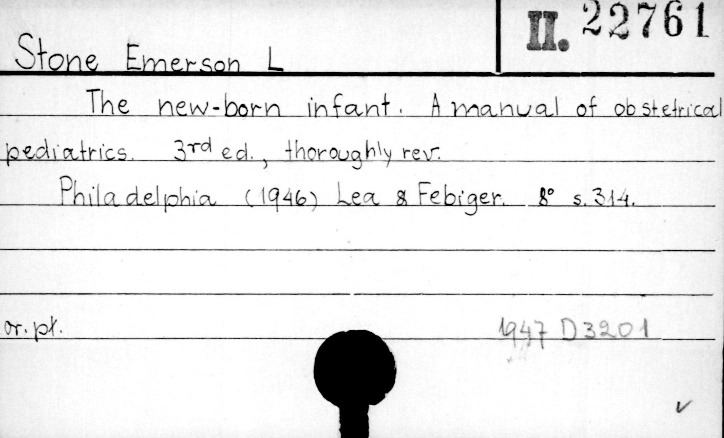 II. 22761
Stone Emerson L
The new-born infant. A manual of obstetrical
pediatrics. 3rd ed., thoroughly rev.
Philadelphia (1946) Lea & Febiger. 8° s. 314.
or. pt.
1947 D3201